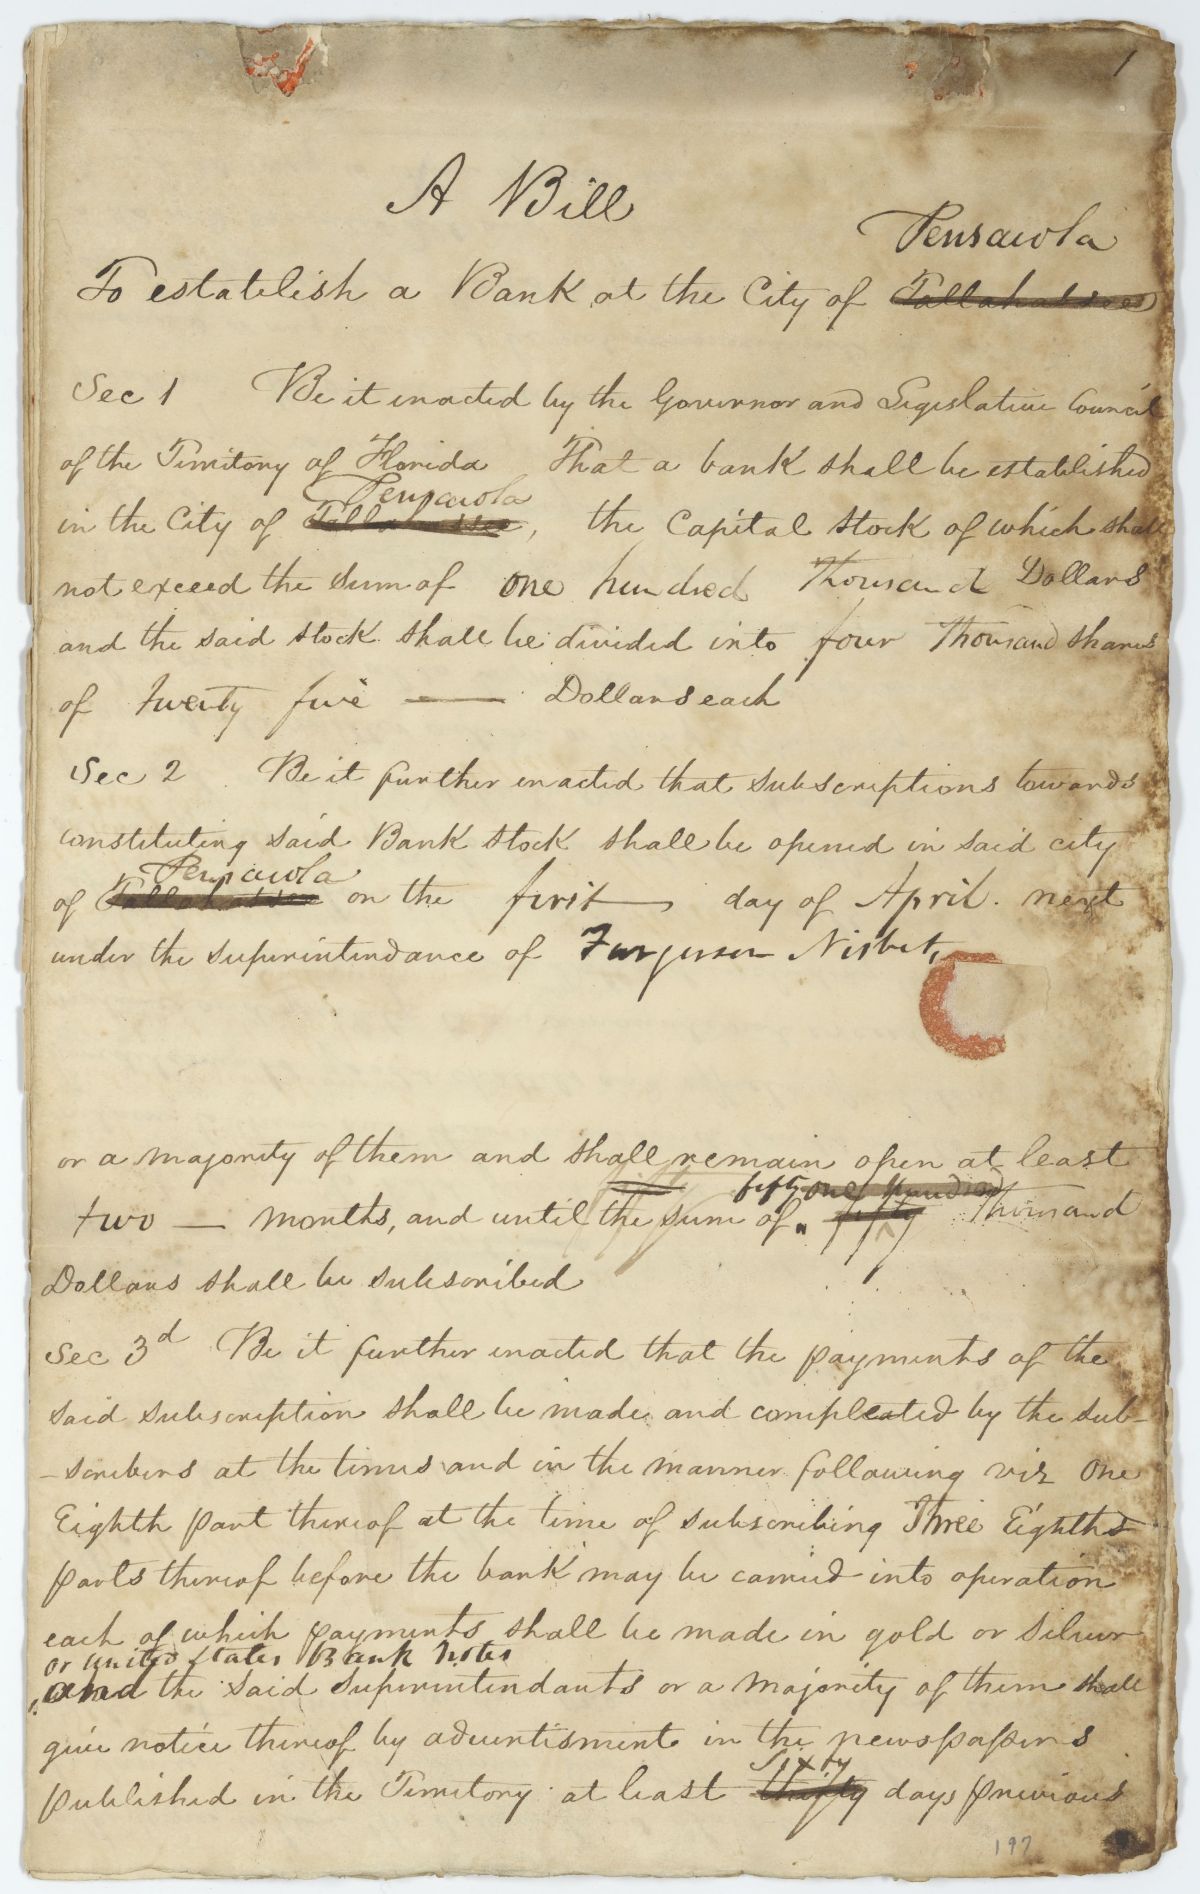 1
A Bill
Pensacola
To establish a Bank at the City of Tallahassee
Sec 1 Be it enacted by the Governor and Legislative Council
of the Territory of Florida That a bank shall be established
Pensacola
in the City of Tallahassee, the Capital Stock of which shall
not exceed the Sum of one hundred Thousand Dollars
and the said stock shall be divided into four Thousand shares
of twenty five — Dollars each
Sec 2 Be it further enacted that subscriptions towards
constituting said Bank Stock shall be opened in said city
Pensacola
of Tallahassee on the first day of April next
under the superintendance of Furguson Nisbet,
or a majority of them and shall remain open at least
fifty one hundred
two — months, and until the sum of fifty Thousand
Dollars shall be subscribed
Sec 3d Be it further enacted that the payments of the
said subscription shall be made and compleated by the sub-
-scribers at the times and in the manner following viz One
Eighth part thereof at the time of subscribing Three Eighths
parts thereof before the bank may be carried into operation
each of which payments shall be made in gold or silver
or United States Bank Notes
and the said superintendants or a majority of them shall
give notice thereof by advertisment in the newspapers
Sixty
published in the Territory at least thirty days previous
197